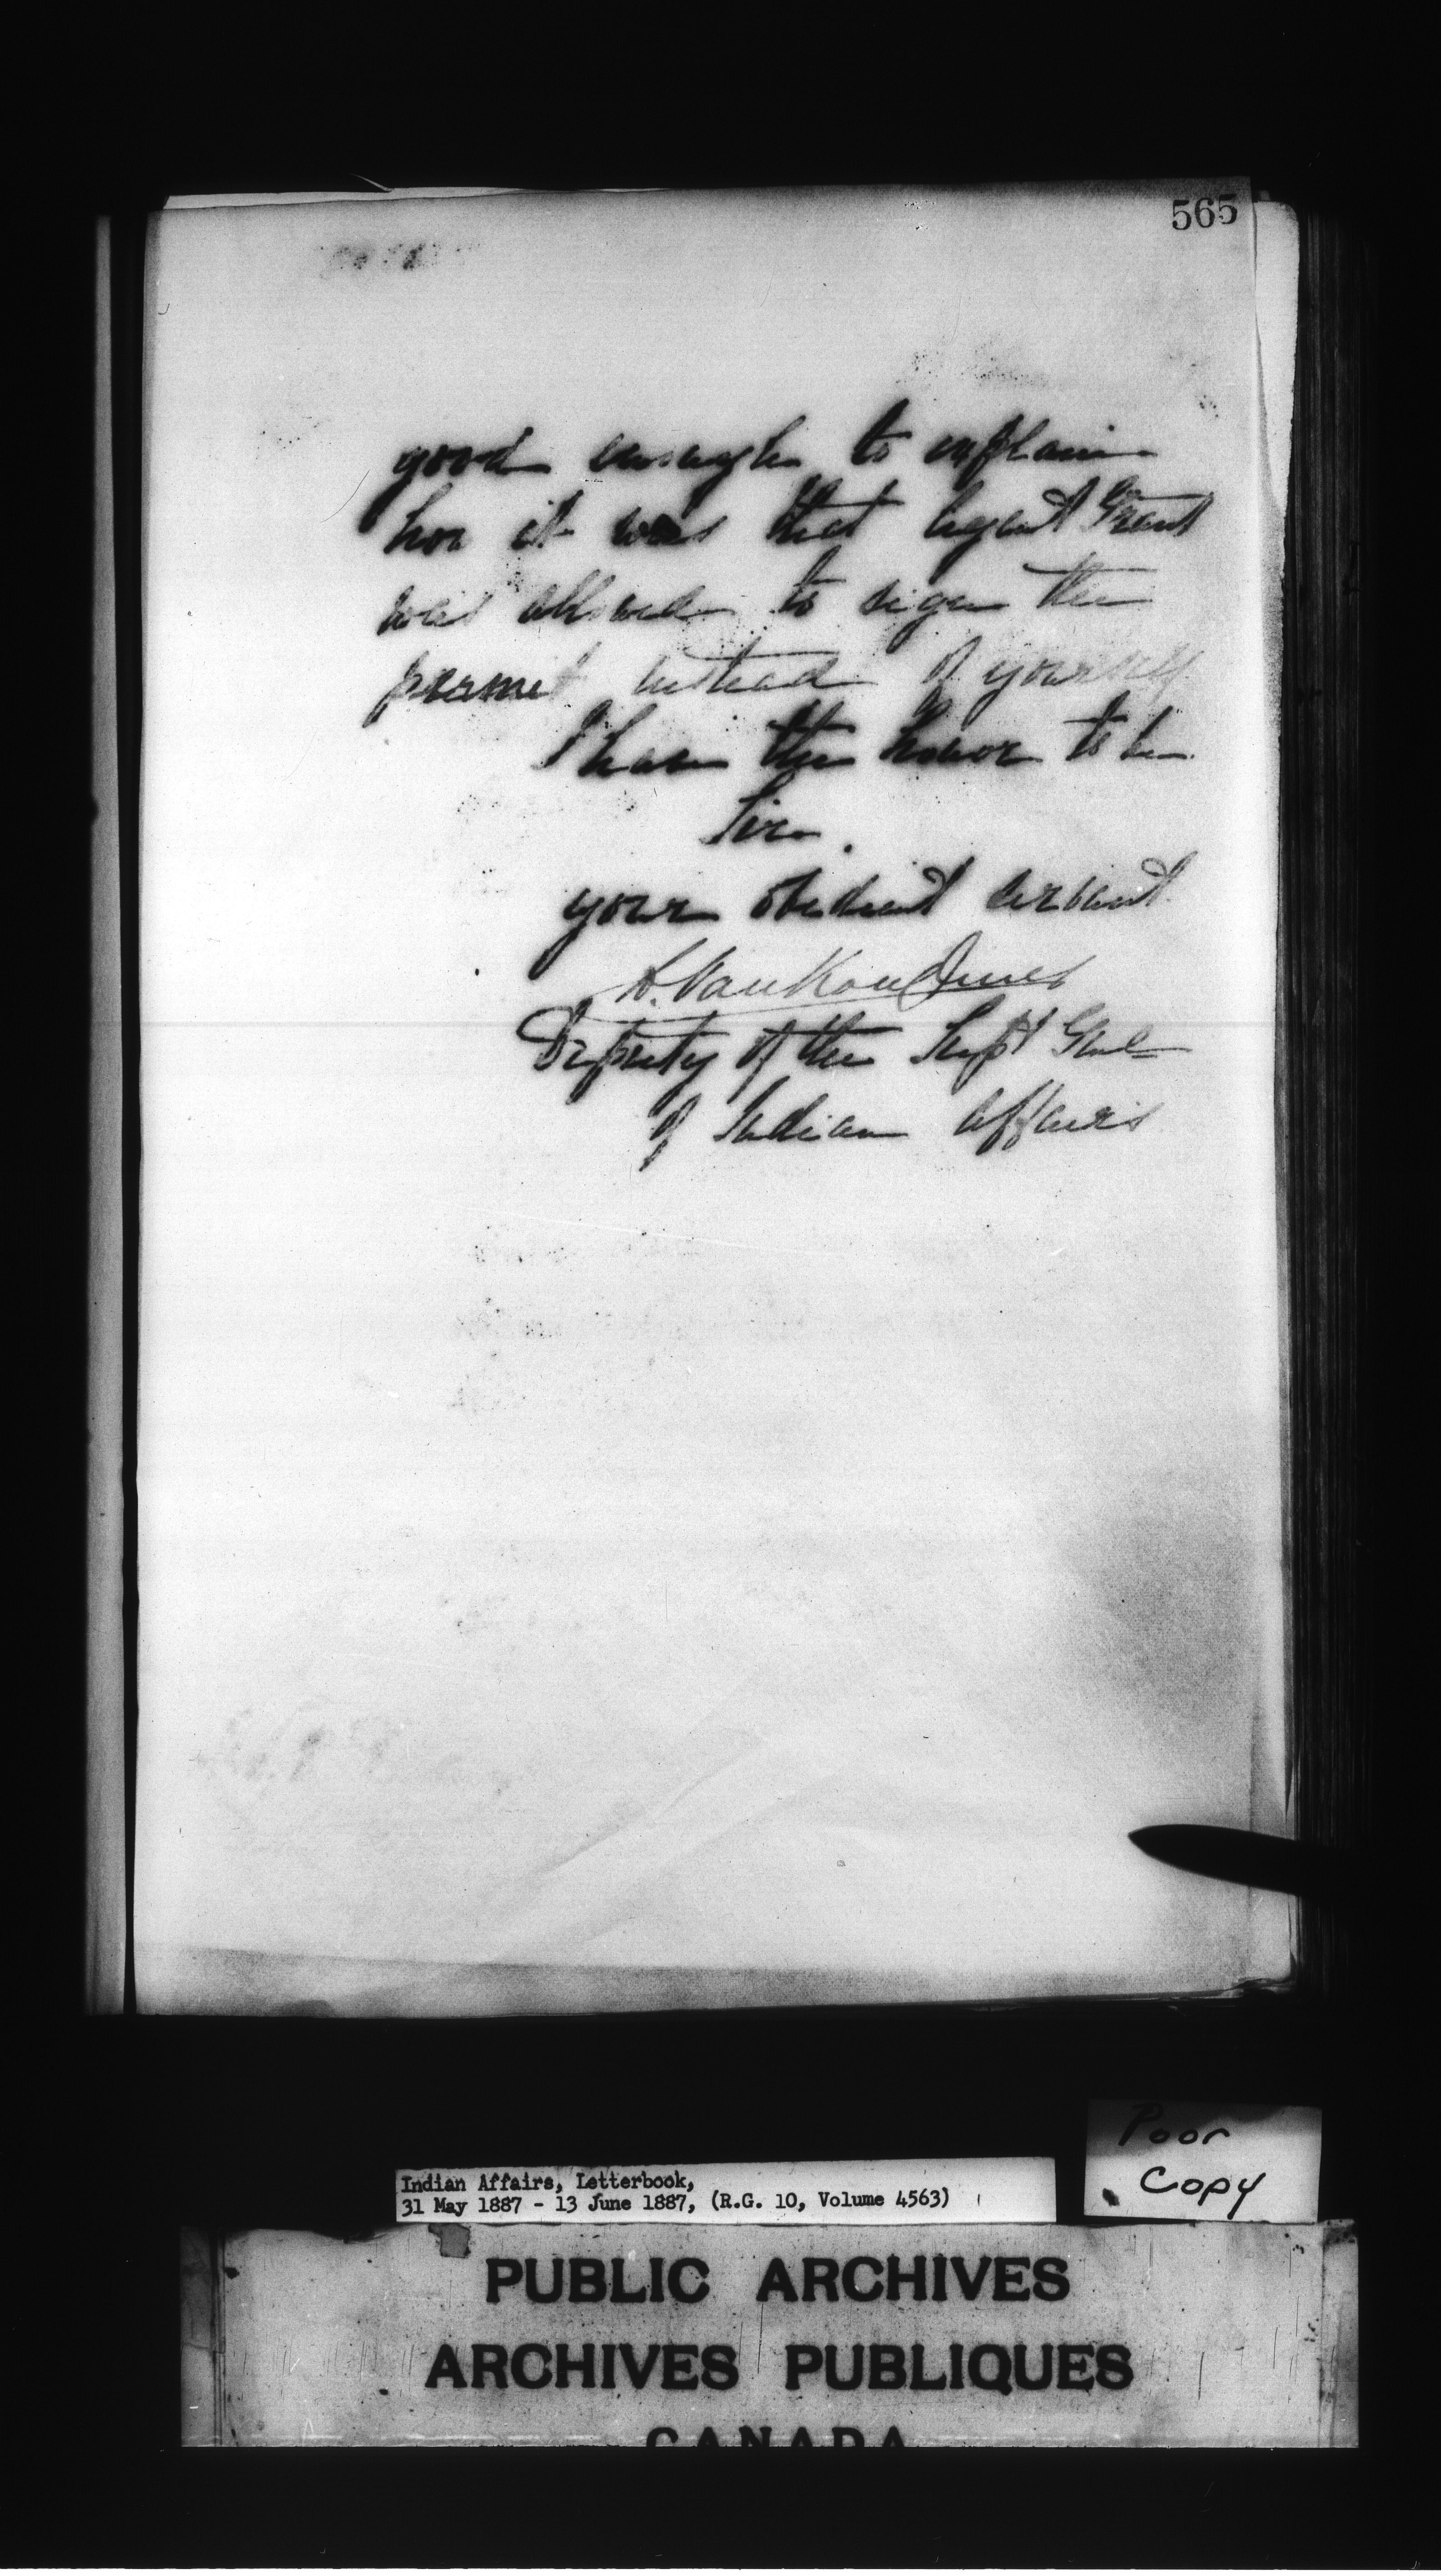 565
good enough to explain
how it was that Agent Grant
was allowed to sign the
permit instead of yourself
I have the honor to be
Sir.
your obedient servant
L. VanKoughnet
Deputy of the Supt Genl
of Indian Affairs
Poor
Copy
Indian Affairs, Letterbook,
31 May 1887 - 13 June 1887, (R.G. 10, Volume 4563)
PUBLIC ARCHIVES
ARCHIVES PUBLIQUES
CANADA